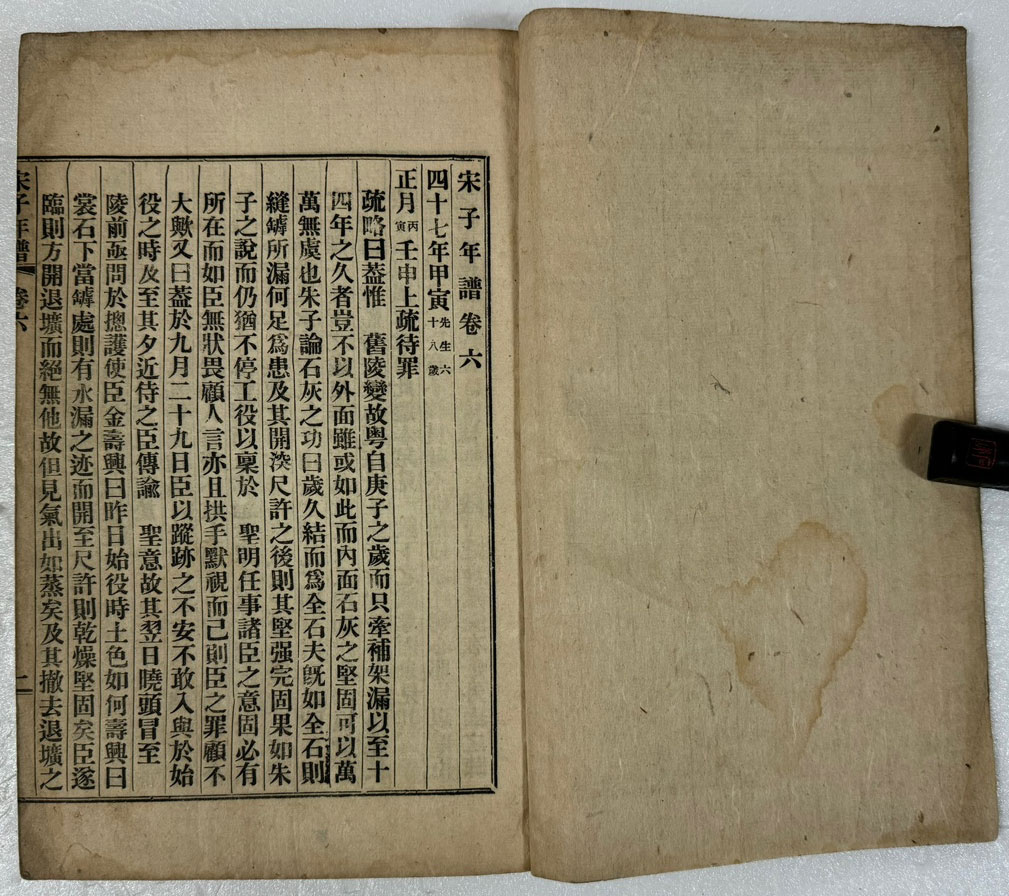 宋子年譜卷六
四十七年甲寅先生六十八歲
正月丙寅壬申上疏待罪
疏略曰葢惟 舊陵變故粤自庚子之歲而只牽補架漏以至十
四年之久者豈不以外面雖或如此而內面石灰之堅固可以萬
萬無虞也朱子論石灰之功曰歲久結而爲全石夫旣如全石則
縫罅所漏何足爲患及其開深尺許之後則其堅强完固果如朱
子之說而仍猶不停工役以稟於 聖明任事諸臣之意固必有
所在而如臣無狀畏顧人言亦且拱手默視而已則臣之罪顧不
大歟又曰葢於九月二十九日臣以蹤跡之不安不敢入與於始
役之時及至其夕近侍之臣傳諭 聖意故其翌日曉頭冒至
陵前亟問於摠護使臣金壽興曰昨日始役時土色如何壽興曰
裳石下當罅處則有水漏之迹而開至尺許則乾燥堅固矣臣遂
臨則方開退壙而絕無他故但見氣出如蒸矣及其撤去退壙之
宋子年譜 卷六